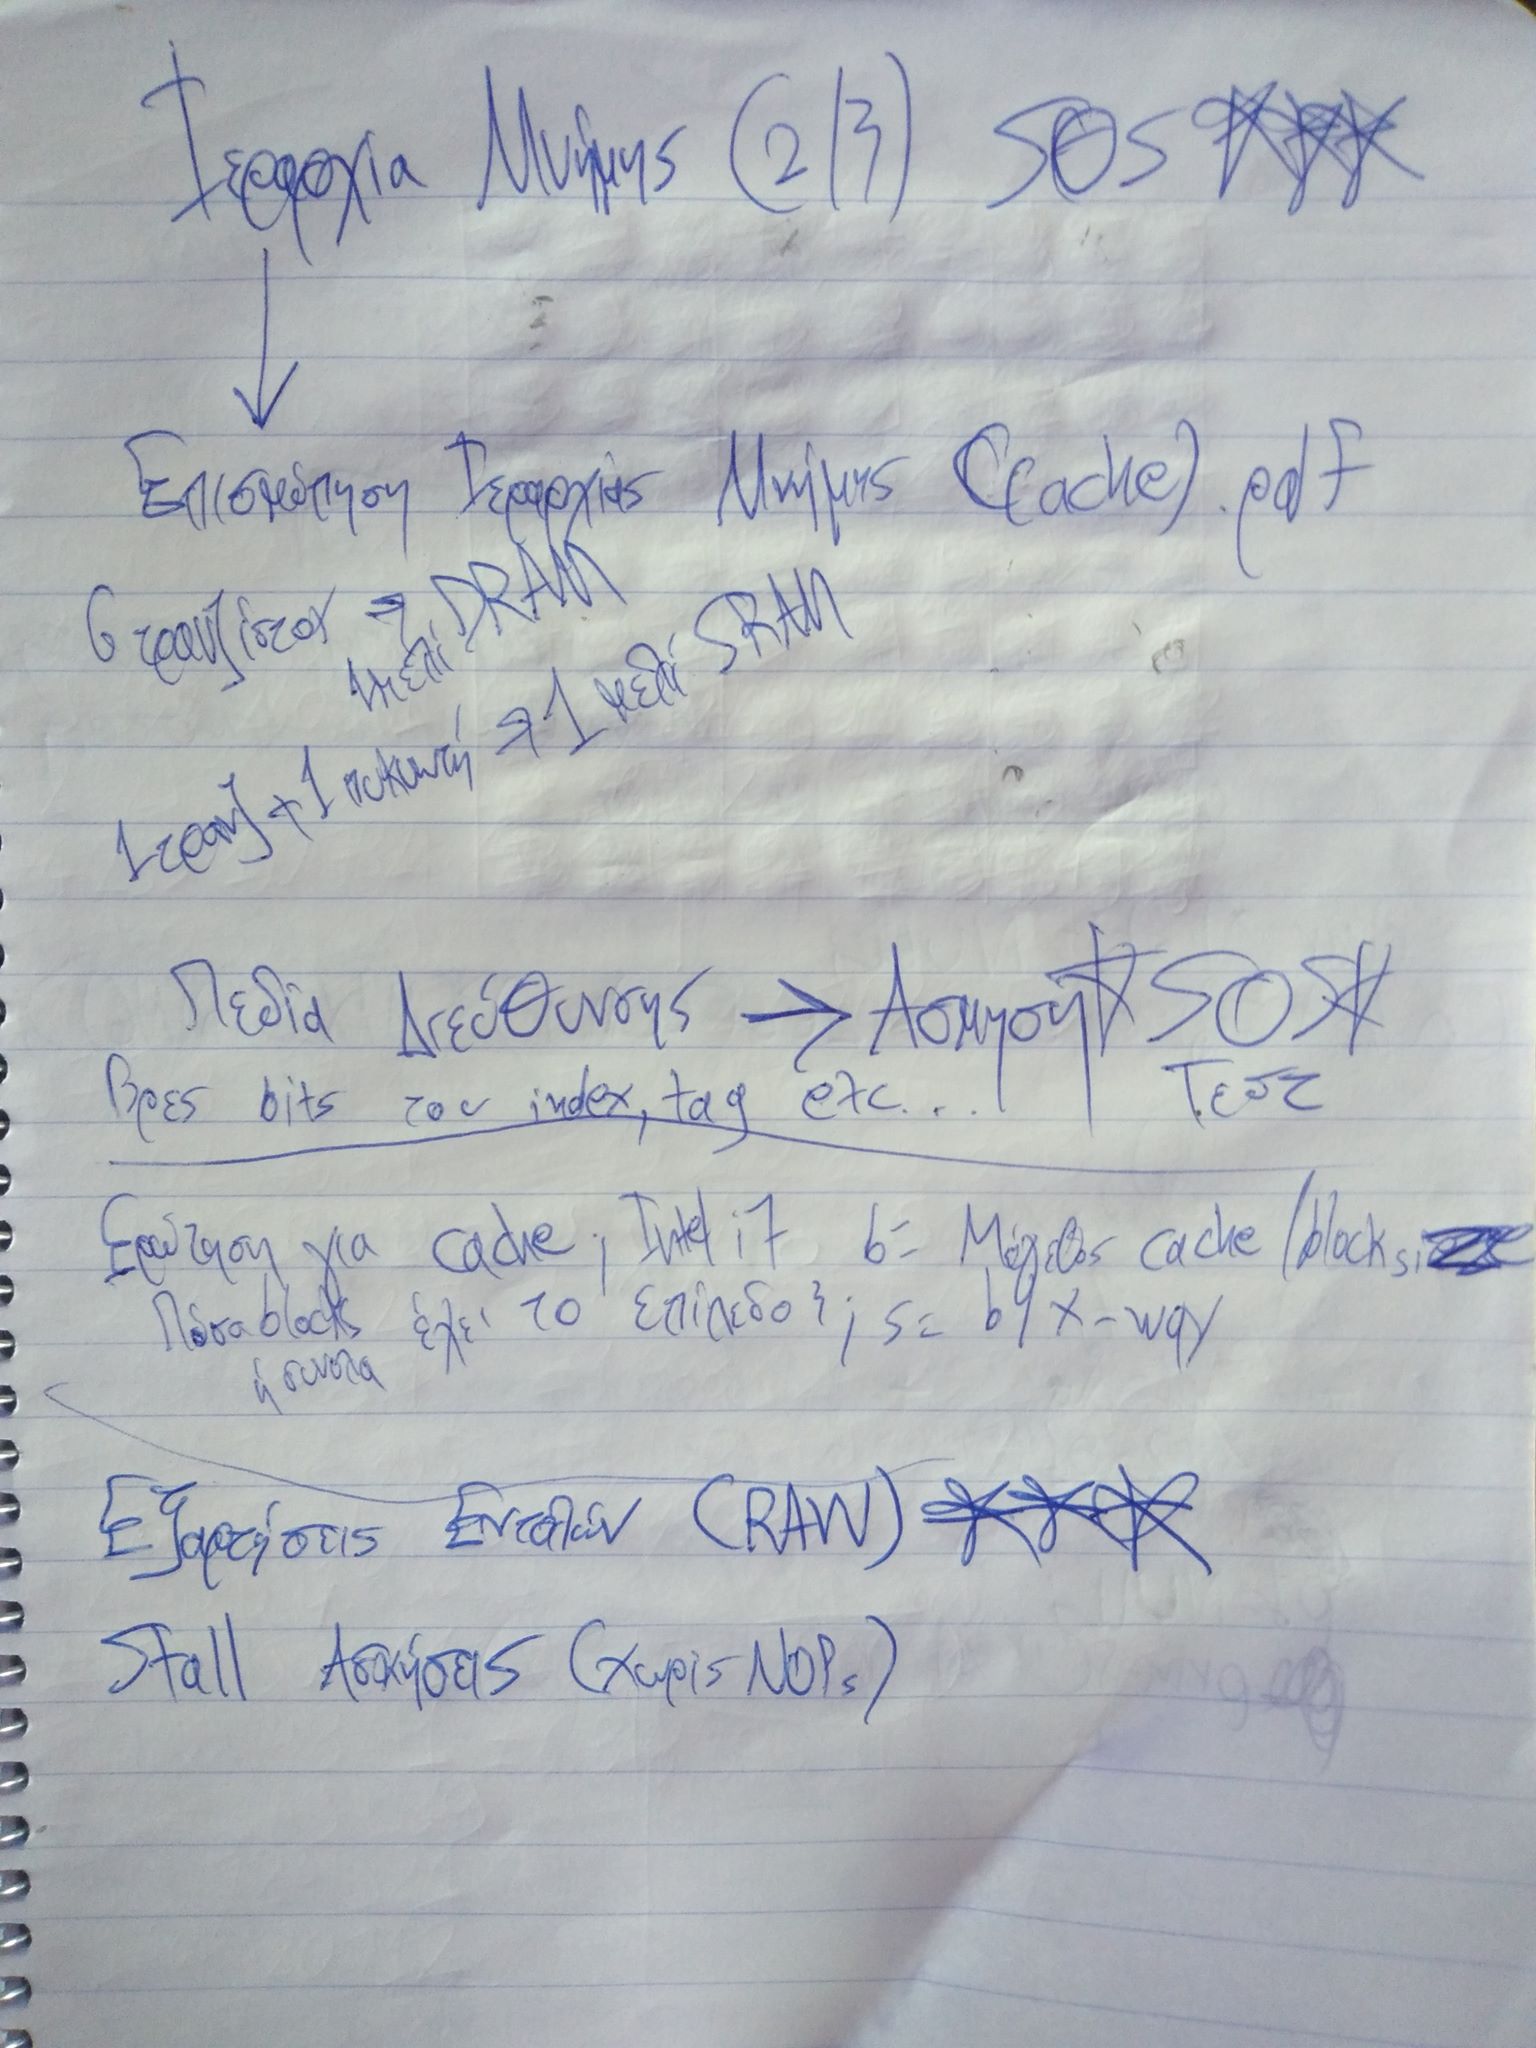 Ιεραρχία Μνήμης (2/3) SOS ***
Επισκόπηση Ιεραρχίας Μνήμης (Cache).pdf
6 τρανζίστορ → 1 κελί DRAM
1 τρανζ + 1 πυκνωτή → 1 κελί SRAM
Πεδία Διεύθυνσης → Άσκηση * SOS *
Βρες bits του index, tag etc... Τεστ
Ερώτηση για cache, Intel i7 b = Μέγεθος cache / block size
Πόσα blocks έχει το επίπεδο 3; s = b / x-way
ή συνολα
Εξαρτήσεις Εντολών (RAW) ***
Stall Ασκήσεις (χωρίς NOPs)